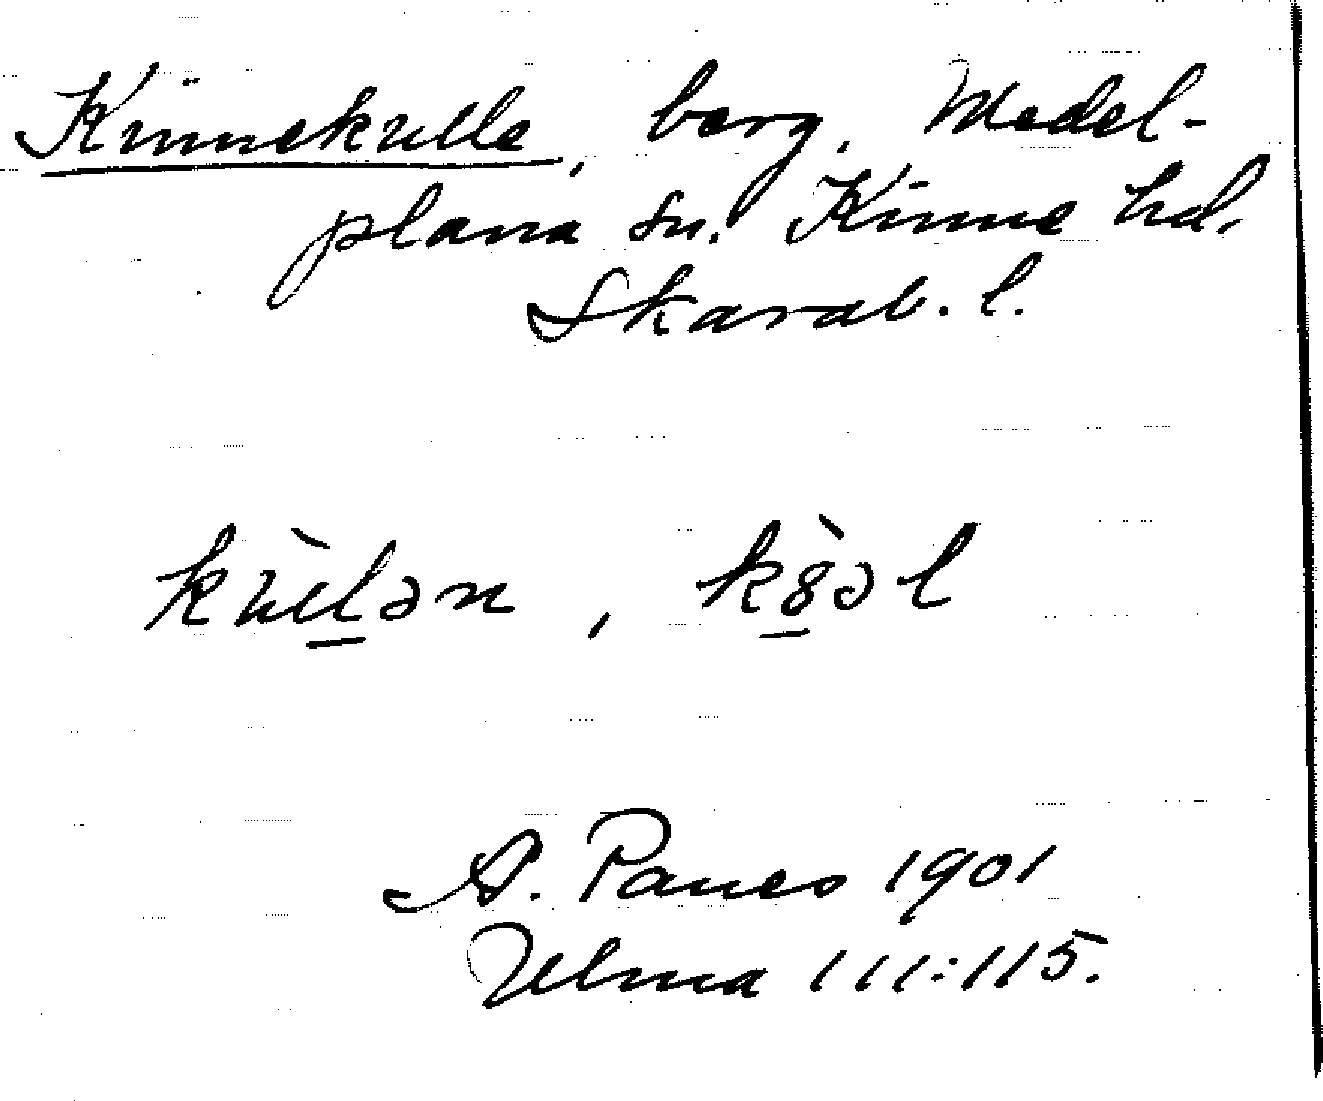 Kinnekulle, berg, Medel-
plana sn. Kinne hd.
Skarab. l.
kùl̠ən, k8̠̀əl
A. Paues 1901
Ulma 111:115.